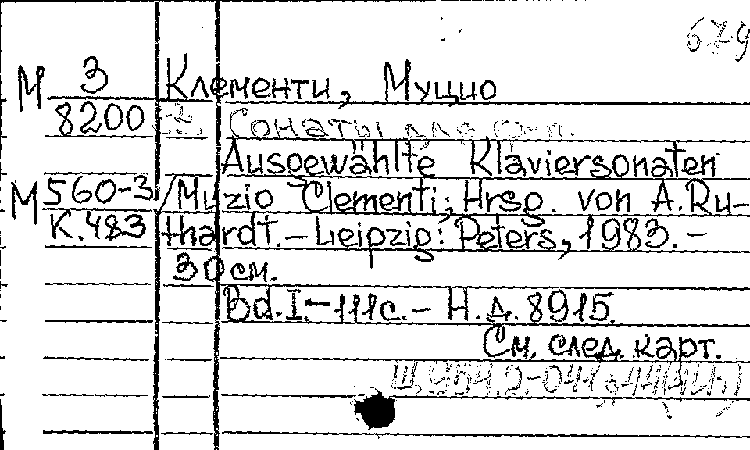 679
М 3 Клементи, Муцио
8200 Сонаты для ф-п.
Ausgewählte Klaviersonaten
М 560-3 /Muzio Clementi; Hrsg. von A. Ru-
К.483 thardt. – Leipzig: Peters, 1983. –
30 см.
Bd. I. – 111 с. – Н.д. 8915.
См. след. карт.